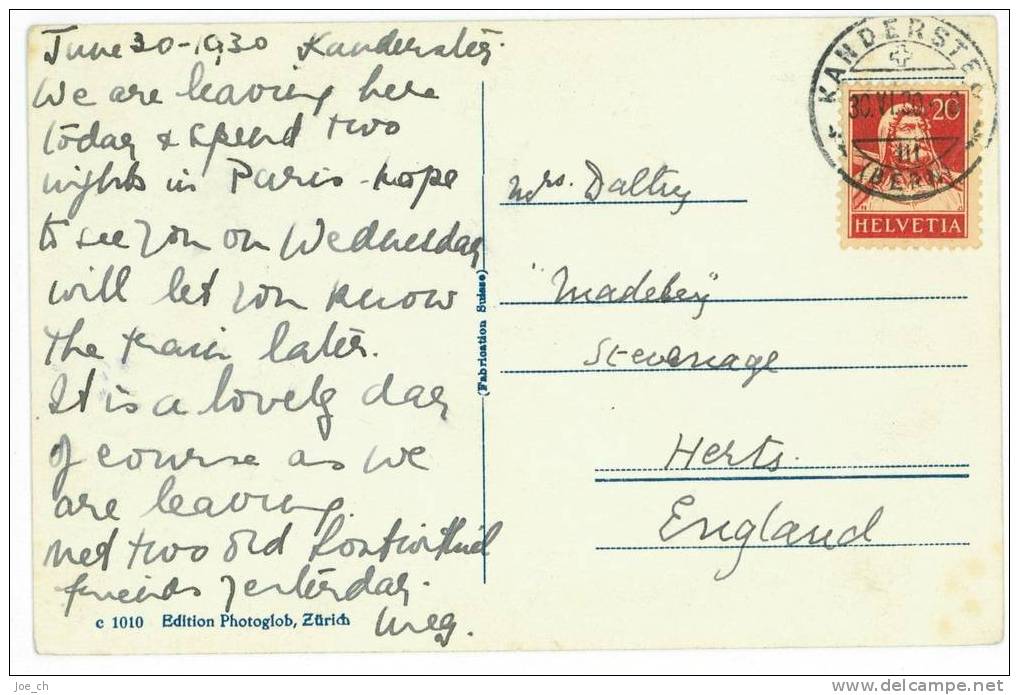 June 30-1930 Kandersteg.
We are leaving here
today & spend two
nights in Paris - hope
to see you on Wednesday
will let you know
the train later.
It is a lovely day
of course as we
are leaving.
met two old Lostwithiel
friends yesterday.
c 1010 Edition Photoglob, Zürich
(Fabrication Suisse)
KANDERSTEG
30.VI.30
(BERN)
20
HELVETIA
Mrs. Daltry
Stevenage
Herts.
England
Joe_ch
delcampe.net